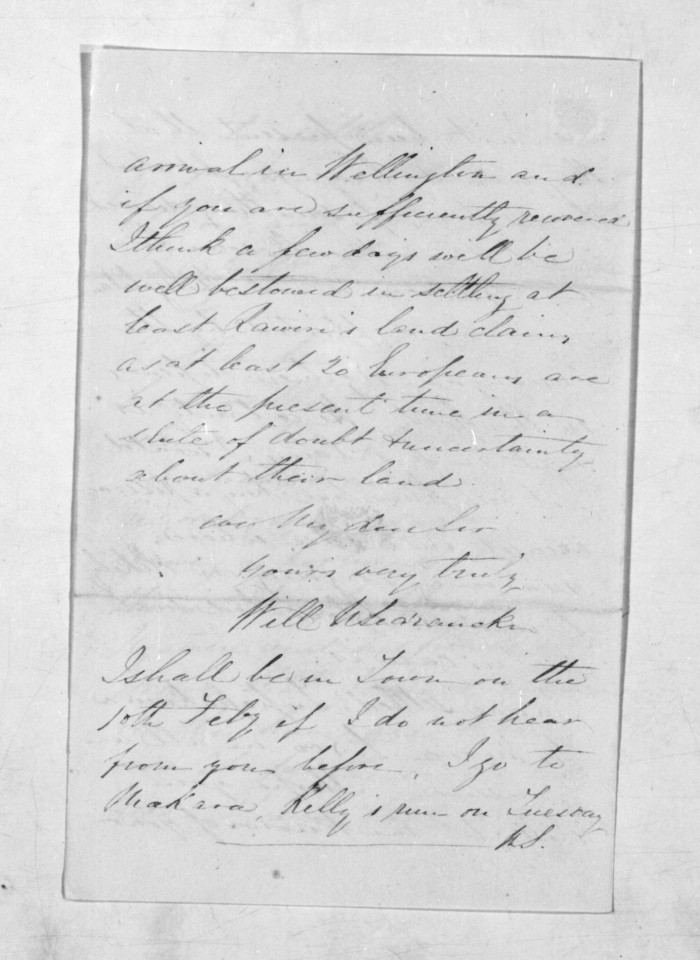 arrival in Wellington and
if you are sufficiently recovered
I think a few days will be
well bestowed in settling at
least Rawiri's land claims
as at least 20 Europeans are
at the present time in a
state of doubt & uncertainty
about their land.
My dear Sir
yours very truly
Will N Searancke
I shall be in Town on the
10th Feby if I do not hear
from you before. I go to
Akitio, Kelly's run on Tuesday